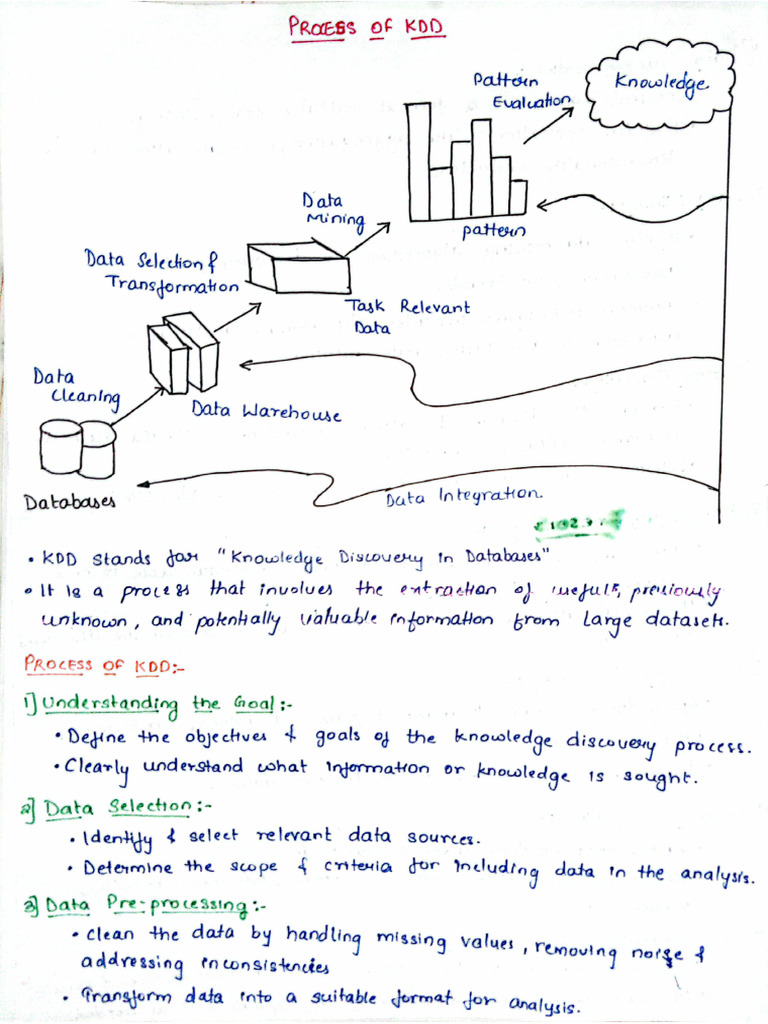 PROCESS OF KDD
Pattern
Evaluation
Knowledge
Data
Mining
pattern
Data Selection &
Transformation
Task Relevant
Data
Data
Cleaning
Data Warehouse
Databases
Data Integration.
• KDD stands for "Knowledge Discovery in Databases"
• It is a process that involves the extraction of useful, previously
unknown, and potentially valuable information from large datasets.
PROCESS OF KDD:-
1] Understanding the Goal:-
• Define the objectives & goals of the knowledge discovery process.
• Clearly understand what information or knowledge is sought.
2] Data Selection:-
• Identify & select relevant data sources.
• Determine the scope & criteria for including data in the analysis.
3] Data Pre-processing:-
• Clean the data by handling missing values, removing noise &
addressing inconsistencies
• Transform data into a suitable format for analysis.